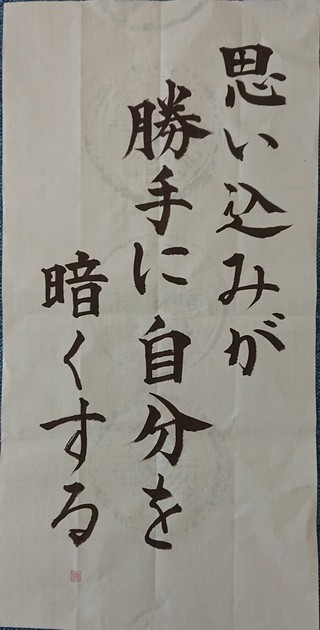 思い込みが
勝手に自分を
暗くする